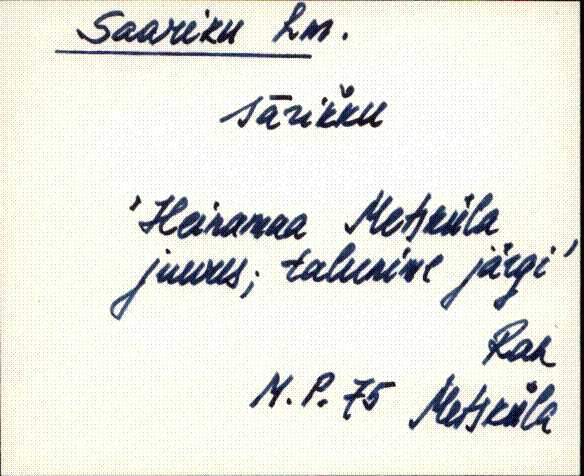 Saariku hm.
sārikku
'Heinamaa Metsküla
juures; talunime järgi'
Rak
M. P. 75 Metsküla